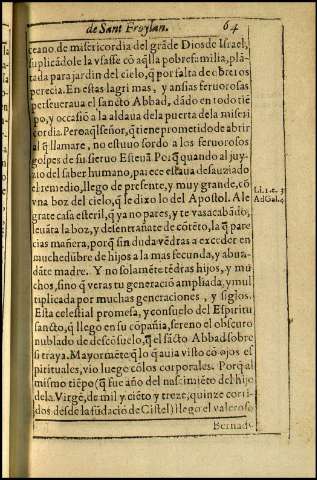 de Sant Froylan. 64
ceano de misericordia del grãde Dios de Israel,
suplicãdole la vsasse cõ aq̃lla pobre familia, plã-
tada para jardin del cielo, q̃ por falta de obreros
perecia. En estas lagrimas, y ansias feruorosas
perseueraua el sancto Abbad, dãdo en todo tiẽ
po, y occasiõ a la aldaua de la puerta de la miseri
cordia. Pero aq̃l señor, q̃ tiene prometido de abrir
al q̃ llamare, no estuuo sordo a los feruorosos
golpes de su sieruo Esteuã. Porq̃ quando al juy-
zio del saber humano, parece estaua desauziado
el remedio, llego de presente, y muy grande, cõ
vna boz del cielo, q̃ le dixo lo del Apostol. Ale
grate casa esteril, q̃ ya no pares, y te vas acabãdo,
leuãta la boz, y desentrañate de cõtẽto, la q̃ pare
cias mañera, porq̃ sin duda vẽdras a exceder en
muchedũbre de hijos a la mas fecunda, y abun-
dãte madre. Y no solamẽte tẽdras hijos, y mu
chos, sino q̃ veras tu generaciõ ampliada, y mul
tiplicada por muchas generaciones, y siglos.
Esta celestial promesa, y consuelo del Espiritu
sancto, q̃ llego en su cõpañia, sereno el obscuro
nublado de descõsuelo, q̃ el sãcto Abbad sobre
si traya. Mayormẽte q̃ lo q̃ auia visto cõ ojos es
pirituales, vio luego cõ los corporales. Porq̃ al
mismo tiẽpo (q̃ fue año del nascimiẽto del hijo
de la Virgẽ, de mil y ciẽto y treze, quinze corri-
dos desde la fũdaciõ de Cistel) llego el valeroso
Bernad.
Ad Gal. 4